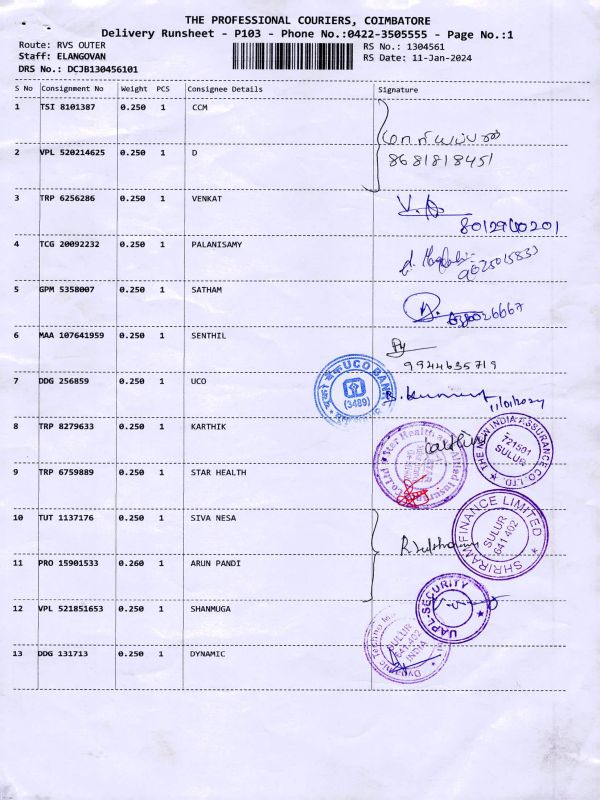 THE PROFESSIONAL COURIERS, COIMBATORE
Delivery Runsheet - P103 - Phone No.:0422-3505555 - Page No.:1
Route: RVS OUTER
RS No.: 1304561
Staff: ELANGOVAN
RS Date: 11-Jan-2024
DRS No.: DCJB130456101
S No Consignment No Weight PCS Consignee Details Signature
1 TSI 8101387 0.250 1 CCM
2 VPL 520214625 0.250 1 D
8681818451
3 TRP 6256286 0.250 1 VENKAT
8012960201
4 TCG 20092232 0.250 1 PALANISAMY
5 GPM 5358007 0.250 1 SATHAM
6 MAA 107641959 0.250 1 SENTHIL
9944635719
7 DDG 256859 0.250 1 UCO
UCO BANK
(3489)
11/01/2024
8 TRP 8279633 0.250 1 KARTHIK
THE NEW INDIA ASSURANCE CO. LTD.
721501
SULUR
9 TRP 6759889 0.250 1 STAR HEALTH
10 TUT 1137176 0.250 1 SIVA NESA
SHRIRAM FINANCE LIMITED
SULUR
641 402
11 PRO 15901533 0.260 1 ARUN PANDI
12 VPL 521851653 0.250 1 SHANMUGA
UAPL-SECURITY
13 DDG 131713 0.250 1 DYNAMIC
SULUR
641 402
INDIA